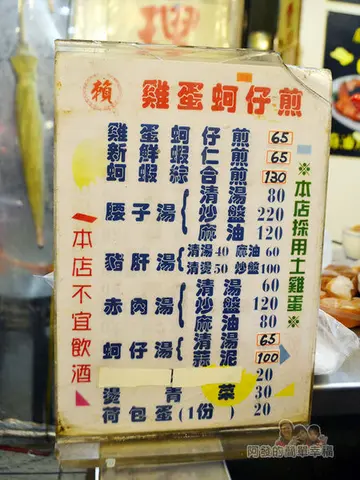 賴 雞蛋蚵仔煎
雞蛋蚵仔煎 65
新鮮蝦仁煎 65
蚵蝦綜合煎 130
腰子湯 清湯 80
炒盤 220
麻油 120
豬肝湯 清湯40 麻油60
清燙50 炒盤100
赤肉湯 清湯 60
炒盤 120
麻油 80
蚵仔湯 清湯 65
蒜泥 100
20
燙青菜 30
荷包蛋(1份) 20
本店不宜飲酒
※本店採用土雞蛋※
阿發的簡單幸福